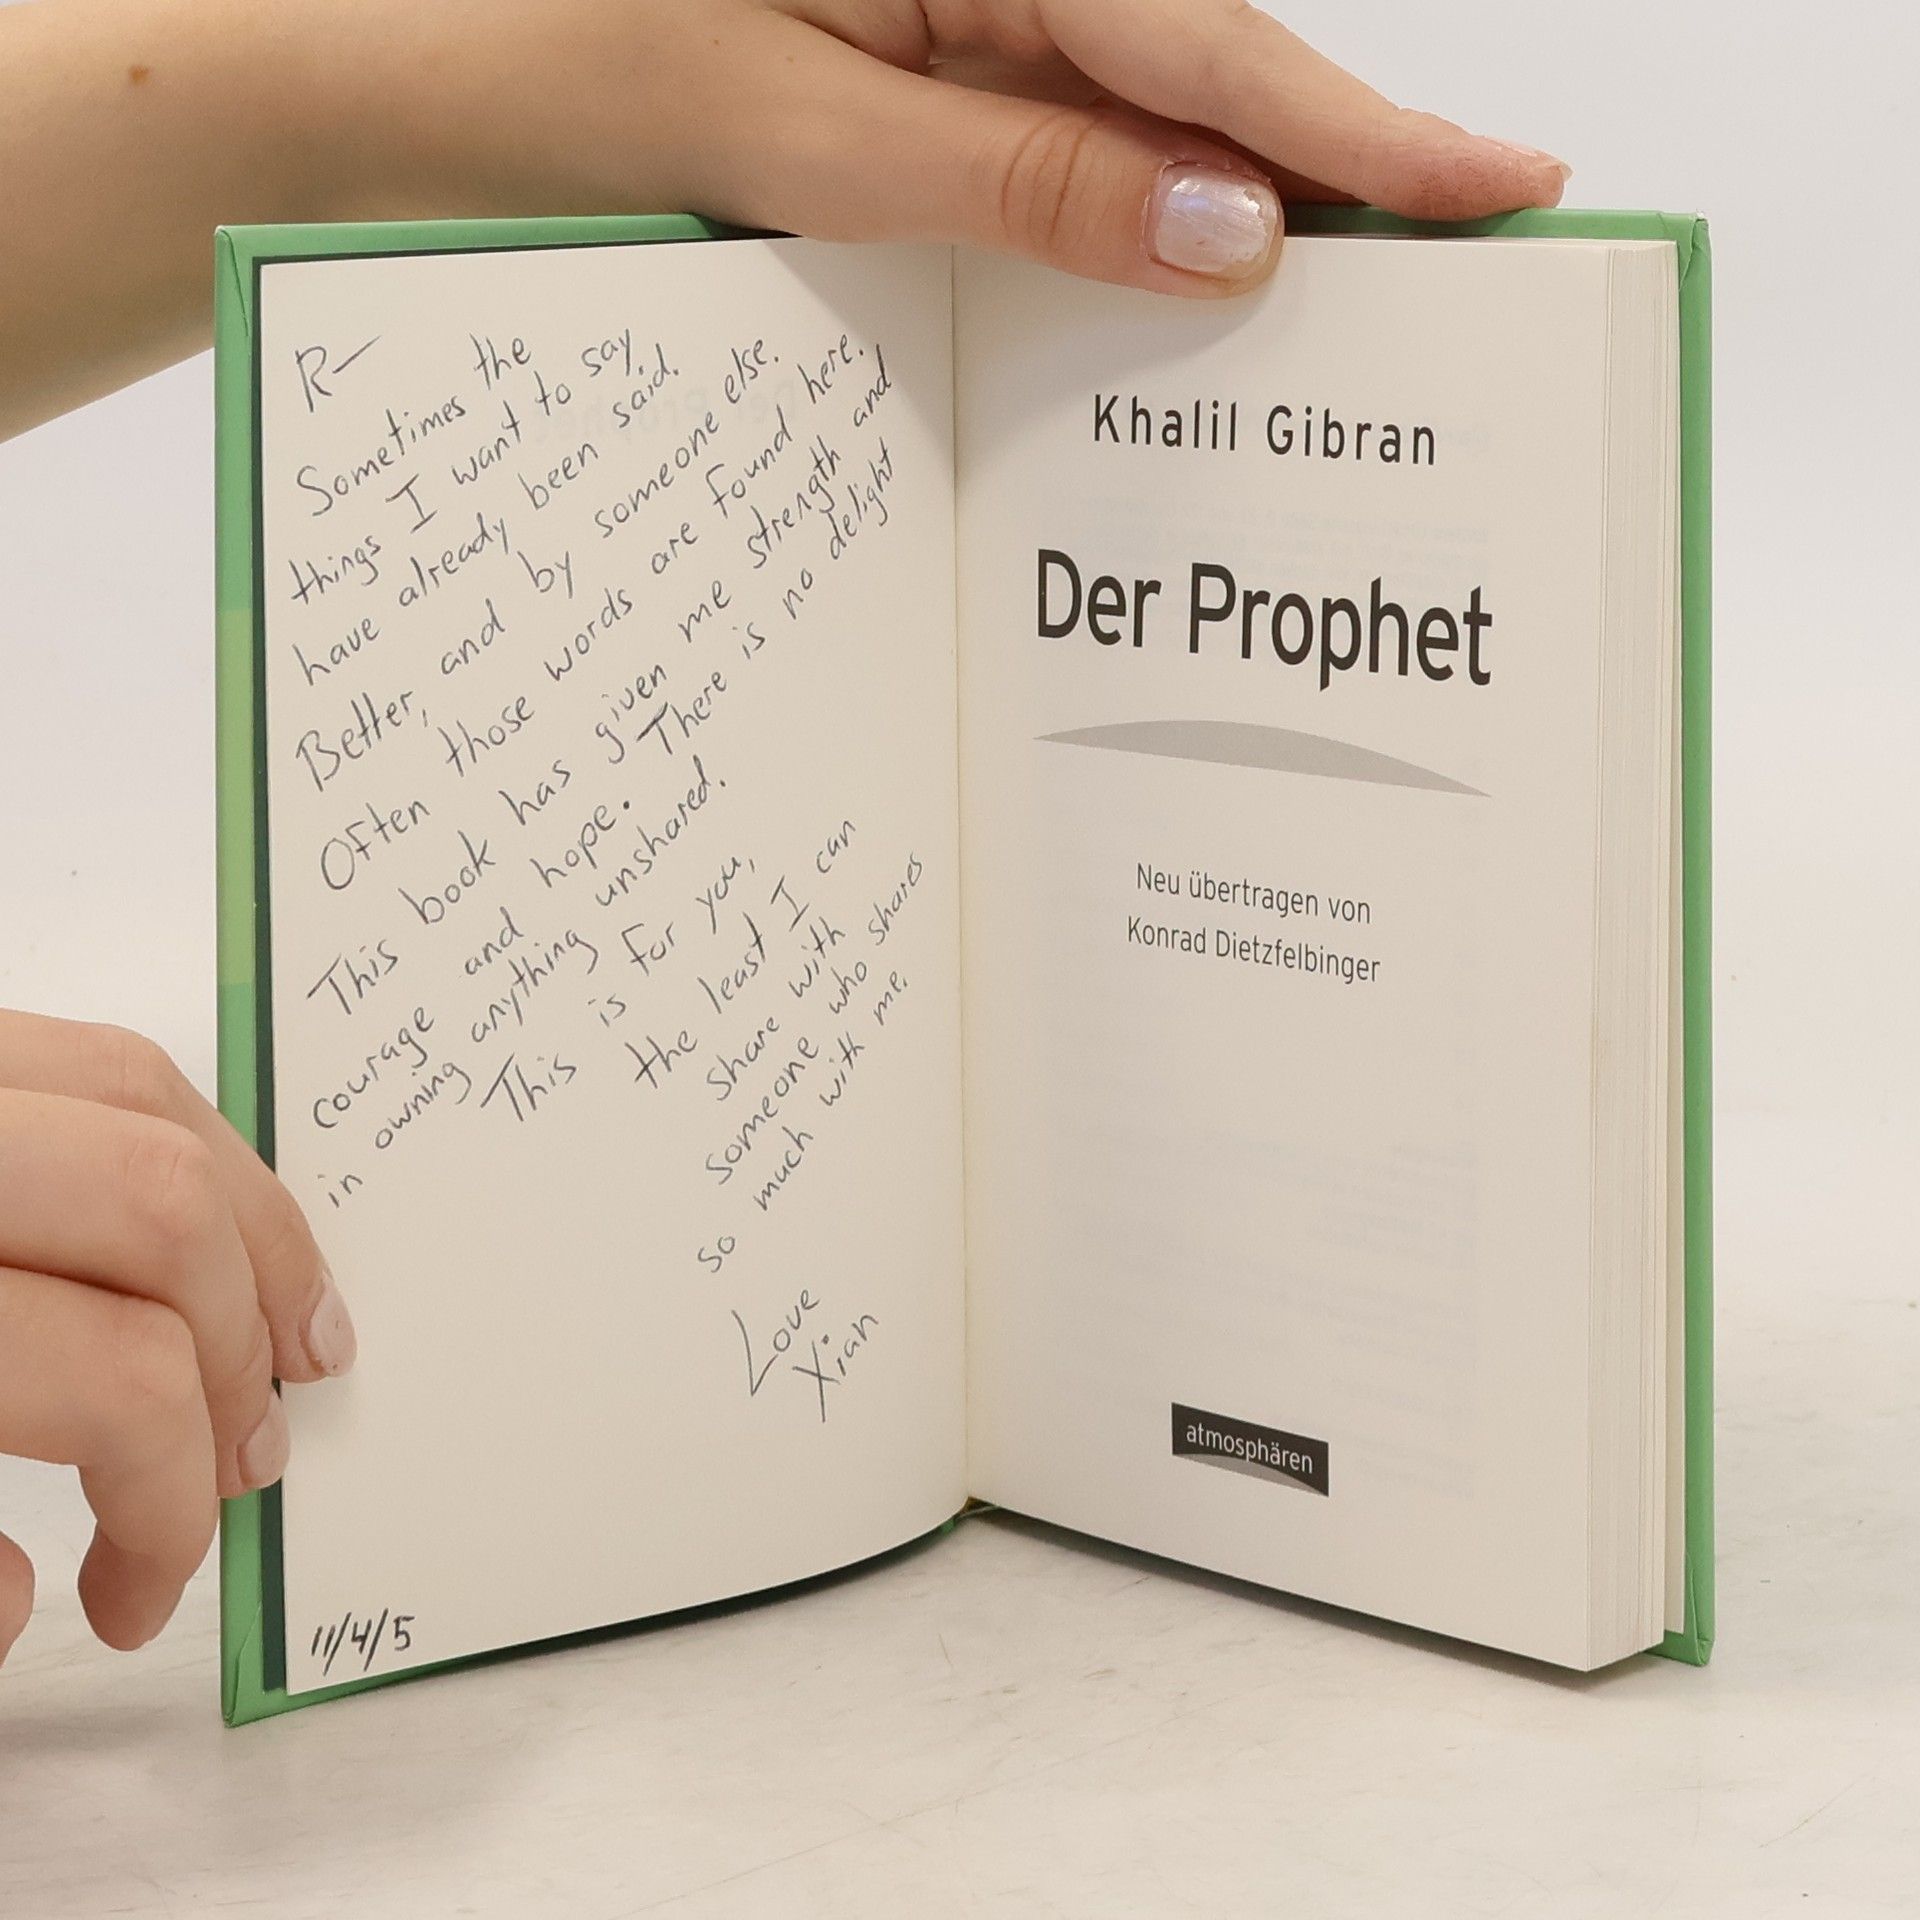 R—
Sometimes the
things I want to say
have already been said.
Better, and by someone else.
Often those words are found here.
This book has given me strength and
courage and hope. There is no delight
in owning anything unshared.
This is for you,
the least I can
share with
someone who shares
so much with me.
Love
Xian
11/4/5
Khalil Gibran
Der Prophet
Neu übertragen von
Konrad Dietzfelbinger
atmosphären